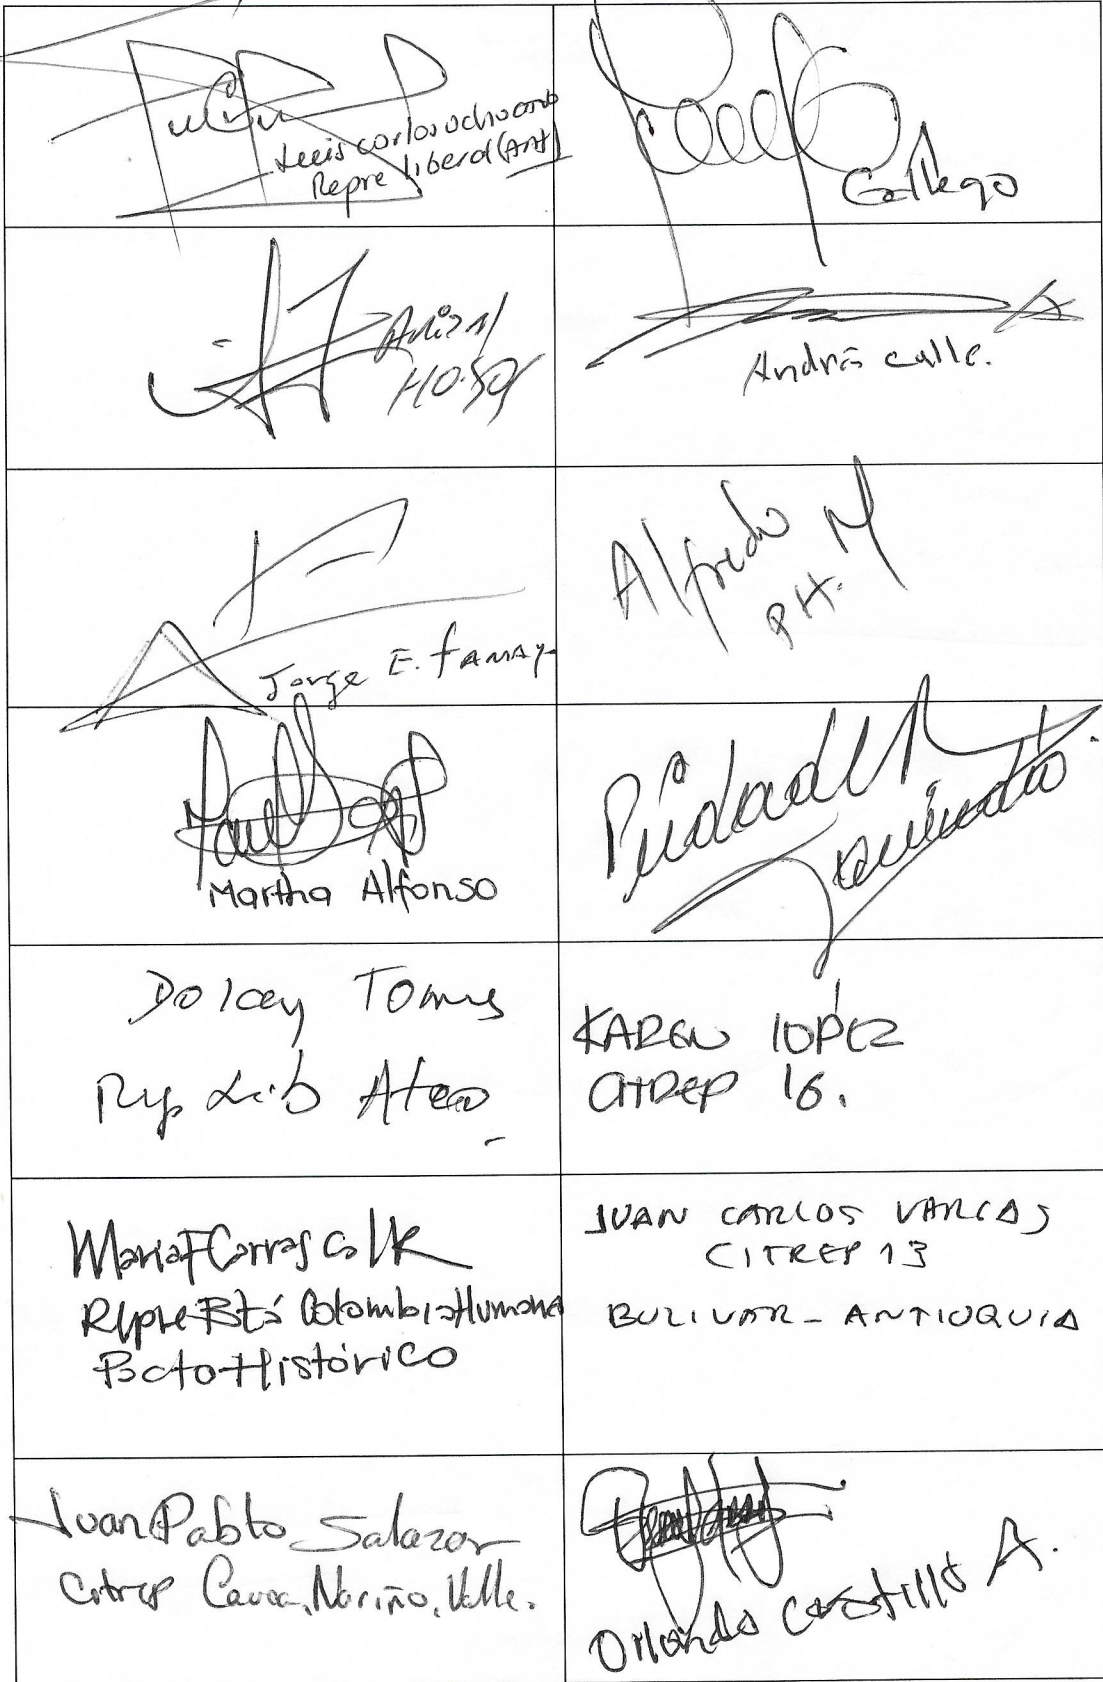 Luis Carlos Ochoa
Repre liberal (Ant)
Gallego
Andrés Calle.
Jorge E. Tamayo
Alfredo M
PH.
Martha Alfonso
Piedad
Dolcey Torres
Rep Lib
KAREN LOPEZ
CITREP 16.
María F Carrascal R
Repre Btá Colombia Humana
Pacto Histórico
JUAN CARLOS VARGAS
CITREP 13
BOLIVAR - ANTIOQUIA
Juan Pablo Salazar
Citrep Cauca, Nariño, Valle.
Orlando Castillo A.